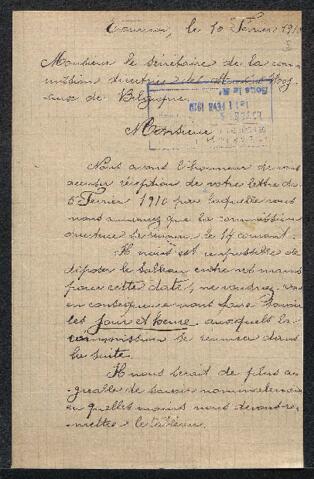 Tournai, le 10 Février 1910
Monsieur le Secrétaire de la com-
mission directrice des Musées Roy-
aux de Belgique.
Monsieur
Nous avons l'honneur de vous
accuser réception de votre lettre du
5 Février 1910 par laquelle vous
nous annoncez que la commission
directrice se réunira le 17 courant.
Il nous est impossible de
déposer le tableau entre vos mains
pour cette date, ne voudriez-vous
en conséquence nous faire savoir
les jour et heure auxquels la
commission se réunira dans
la suite.
Il nous serait de plus a-
-gréable de savoir
en quelles mains nous devons re-
mettre le tableau.